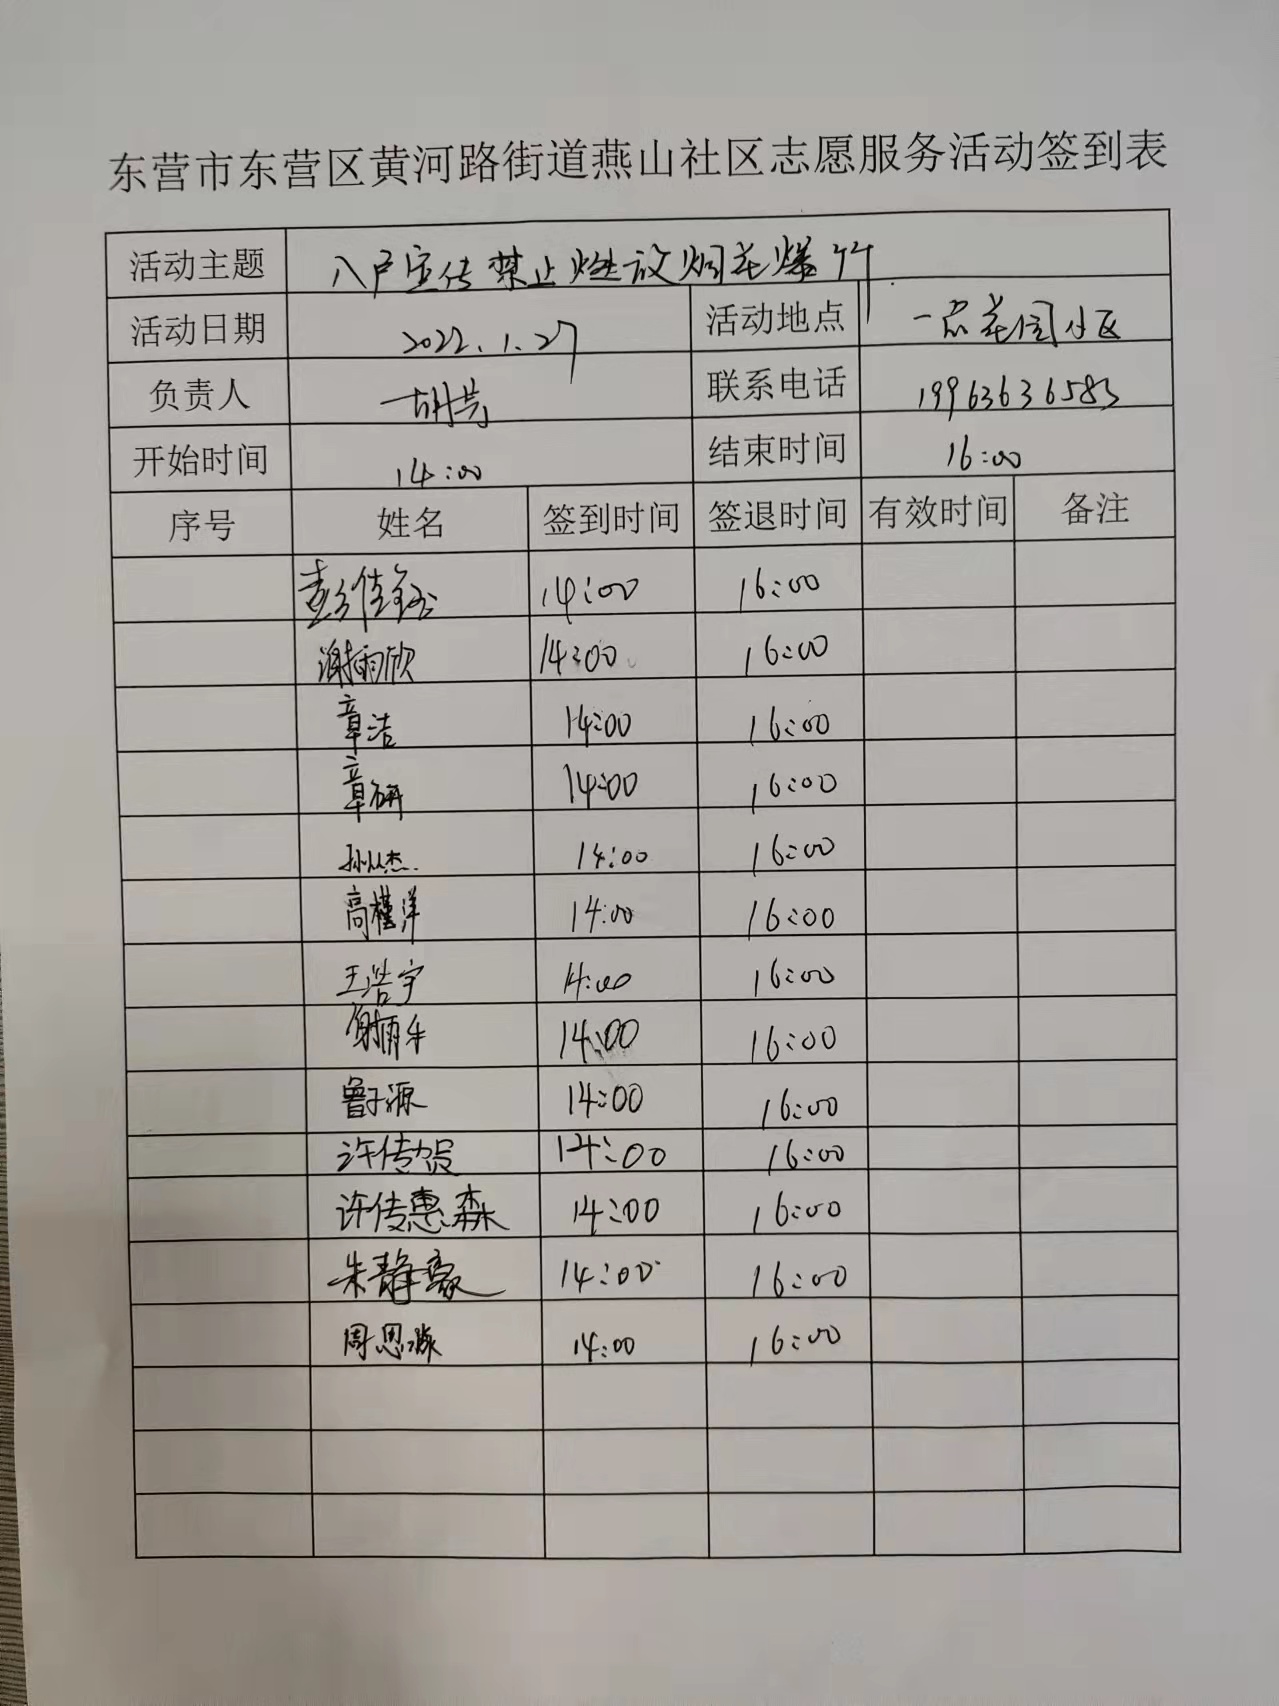 东营市东营区黄河路街道燕山社区志愿服务活动签到表
活动主题 入户宣传禁止燃放烟花爆竹
活动日期 2022.1.27 活动地点 一品花园小区
负责人 胡芸 联系电话 19963636583
开始时间 14:00 结束时间 16:00
序号 姓名 签到时间 签退时间 有效时间 备注
彭佳钰 14:00 16:00
谢雨欣 14:00 16:00
章洁 14:00 16:00
章妍 14:00 16:00
孙从杰 14:00 16:00
高槿洋 14:00 16:00
王浩宇 14:00 16:00
14:00 16:00
鲁子源 14:00 16:00
许传贺 14:00 16:00
许传惠森 14:00 16:00
朱静豪 14:00 16:00
周思 14:00 16:00